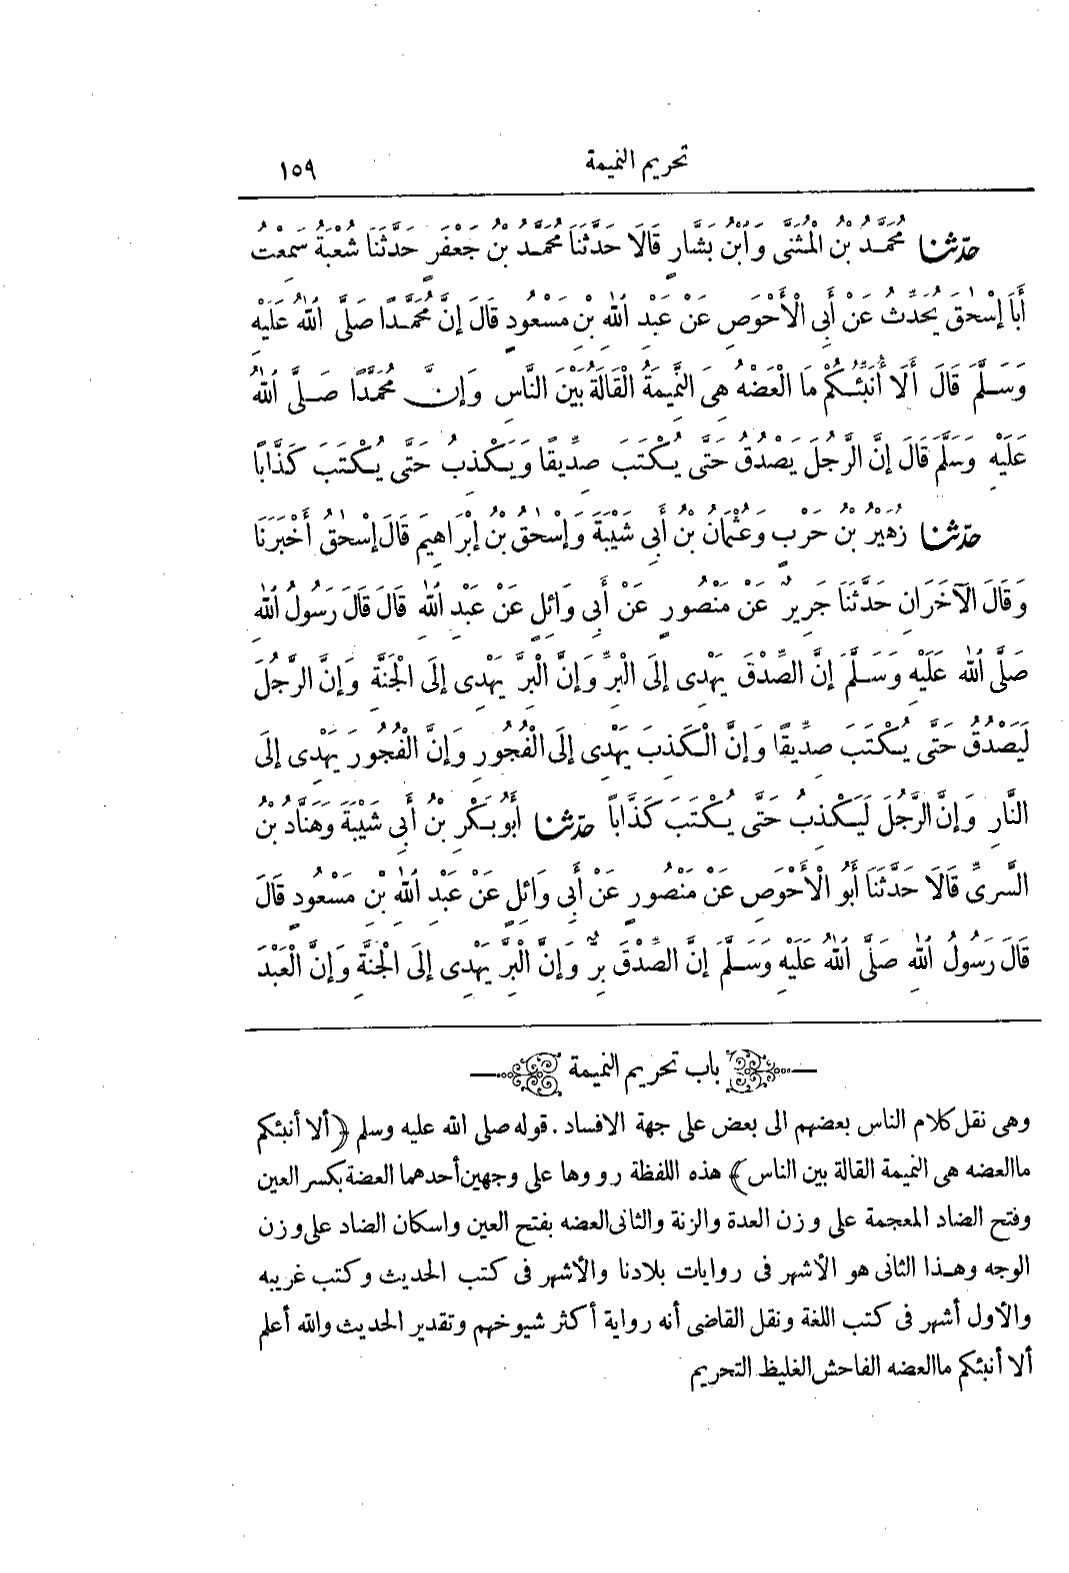 تحريم النميمة ١٥٩
حدّثنا مُحَمَّدُ بْنُ الْمُثَنَّى وَابْنُ بَشَّارٍ قَالَا حَدَّثَنَا مُحَمَّدُ بْنُ جَعْفَرٍ حَدَّثَنَا شُعْبَةُ سَمِعْتُ
أَبَا إِسْحٰقَ يُحَدِّثُ عَنْ أَبِى الْأَحْوَصِ عَنْ عَبْدِ اللهِ بْنِ مَسْعُودٍ قَالَ إِنَّ مُحَمَّدًا صَلَّى اللهُ عَلَيْهِ
وَسَلَّمَ قَالَ أَلَا أُنَبِّئُكُمْ مَا الْعَضْهُ هِىَ النَّمِيمَةُ الْقَالَةُ بَيْنَ النَّاسِ وَإِنَّ مُحَمَّدًا صَلَّى اللهُ
عَلَيْهِ وَسَلَّمَ قَالَ إِنَّ الرَّجُلَ يَصْدُقُ حَتَّى يُكْتَبَ صِدِّيقًا وَيَكْذِبُ حَتَّى يُكْتَبَ كَذَّابًا
حدّثنا زُهَيْرُ بْنُ حَرْبٍ وَعُثْمَانُ بْنُ أَبِى شَيْبَةَ وَإِسْحٰقُ بْنُ إِبْرَاهِيمَ قَالَ إِسْحٰقُ أَخْبَرَنَا
وَقَالَ الْآخَرَانِ حَدَّثَنَا جَرِيرٌ عَنْ مَنْصُورٍ عَنْ أَبِى وَائِلٍ عَنْ عَبْدِ اللهِ قَالَ قَالَ رَسُولُ اللهِ
صَلَّى اللهُ عَلَيْهِ وَسَلَّمَ إِنَّ الصِّدْقَ يَهْدِى إِلَى الْبِرِّ وَإِنَّ الْبِرَّ يَهْدِى إِلَى الْجَنَّةِ وَإِنَّ الرَّجُلَ
لَيَصْدُقُ حَتَّى يُكْتَبَ صِدِّيقًا وَإِنَّ الْكَذِبَ يَهْدِى إِلَى الْفُجُورِ وَإِنَّ الْفُجُورَ يَهْدِى إِلَى
النَّارِ وَإِنَّ الرَّجُلَ لَيَكْذِبُ حَتَّى يُكْتَبَ كَذَّابًا حدّثنا أَبُو بَكْرِ بْنُ أَبِى شَيْبَةَ وَهَنَّادُ بْنُ
السَّرِىِّ قَالَا حَدَّثَنَا أَبُو الْأَحْوَصِ عَنْ مَنْصُورٍ عَنْ أَبِى وَائِلٍ عَنْ عَبْدِ اللهِ بْنِ مَسْعُودٍ قَالَ
قَالَ رَسُولُ اللهِ صَلَّى اللهُ عَلَيْهِ وَسَلَّمَ إِنَّ الصِّدْقَ بِرٌّ وَإِنَّ الْبِرَّ يَهْدِى إِلَى الْجَنَّةِ وَإِنَّ الْعَبْدَ
باب تحريم النميمة
وهى نقل كلام الناس بعضهم الى بعض على جهة الافساد . قوله صلى الله عليه وسلم ﴿ألا أنبئكم
ما العضه هى النميمة القالة بين الناس﴾ هذه اللفظة رووها على وجهين أحدهما العضة بكسر العين
وفتح الضاد المعجمة على وزن العدة والزنة والثانى العضه بفتح العين واسكان الضاد على وزن
الوجه وهـذا الثانى هو الأشهر فى روايات بلادنا والأشهر فى كتب الحديث وكتب غريبه
والأول أشهر فى كتب اللغة ونقل القاضى أنه رواية أكثر شيوخهم وتقدير الحديث والله أعلم
ألا أنبئكم ما العضه الفاحش الغليظ التحريم